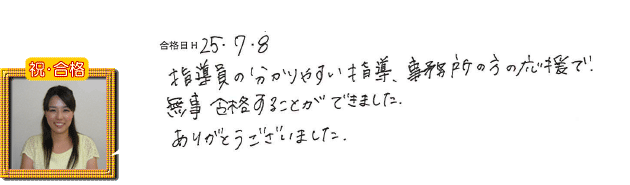 合格日 H 25.7.8
祝・合格
指導員の分かりやすい指導、事務所の方の応援で!
無事 合格することができました.
ありがとうございました.